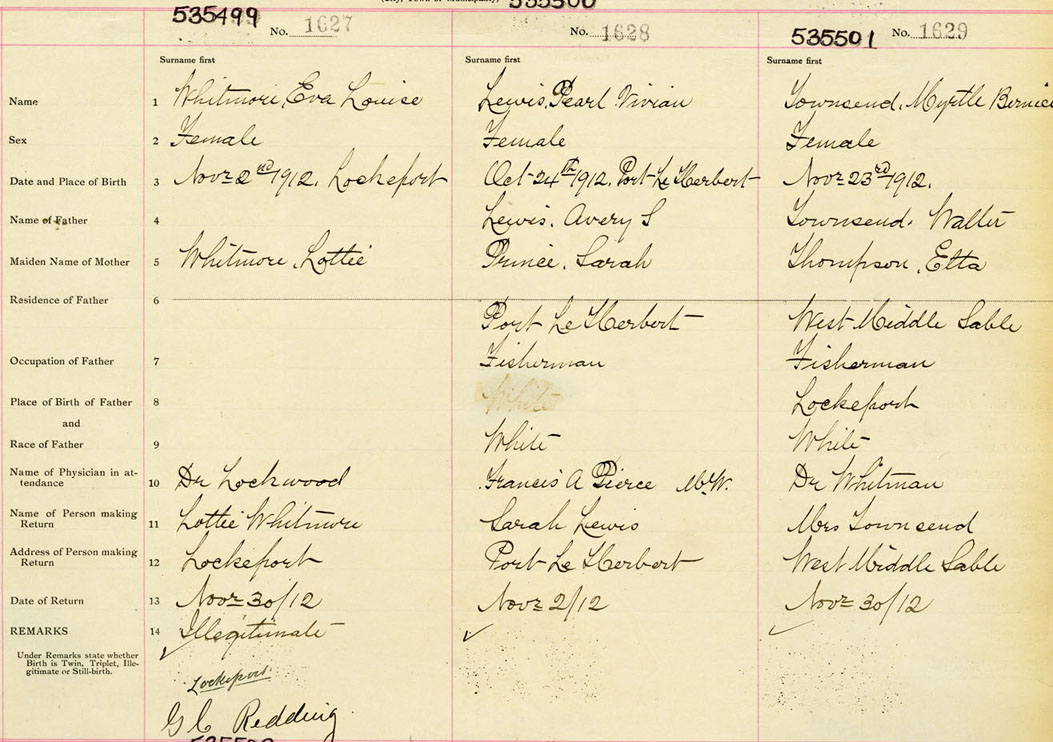 535500
535499 No. 1627 No. 1628 535501 No. 1629
Surname first Surname first Surname first
Name 1 Whitmore, Eva Louise Lewis, Pearl Vivian Townsend, Myrtle Bernice
Sex 2 Female Female Female
Date and Place of Birth 3 Nov 2nd 1912. Lockeport Oct 24th 1912. Port Le Herbert Nov 23rd 1912.
Name of Father 4 Lewis. Avery S Townsend. Walter
Maiden Name of Mother 5 Whitmore, Lottie Prince, Sarah Thompson, Etta
Residence of Father 6 Port Le Herbert West Middle Sable
Occupation of Father 7 Fisherman Fisherman
Place of Birth of Father 8 White Lockeport
and
Race of Father 9 White White
Name of Physician in at-
tendance 10 Dr Lockwood Francis A Pierce M.W. Dr Whitman
Name of Person making
Return 11 Lottie Whitmore Sarah Lewis Mrs Townsend
Address of Person making
Return 12 Lockeport Port Le Herbert West Middle Sable
Date of Return 13 Nov 30/12 Nov 2/12 Nov 30/12
REMARKS 14 Illegitimate
Under Remarks state whether
Birth is Twin, Triplet, Ille-
gitimate or Still-birth.
Lockeport.
G C Redding